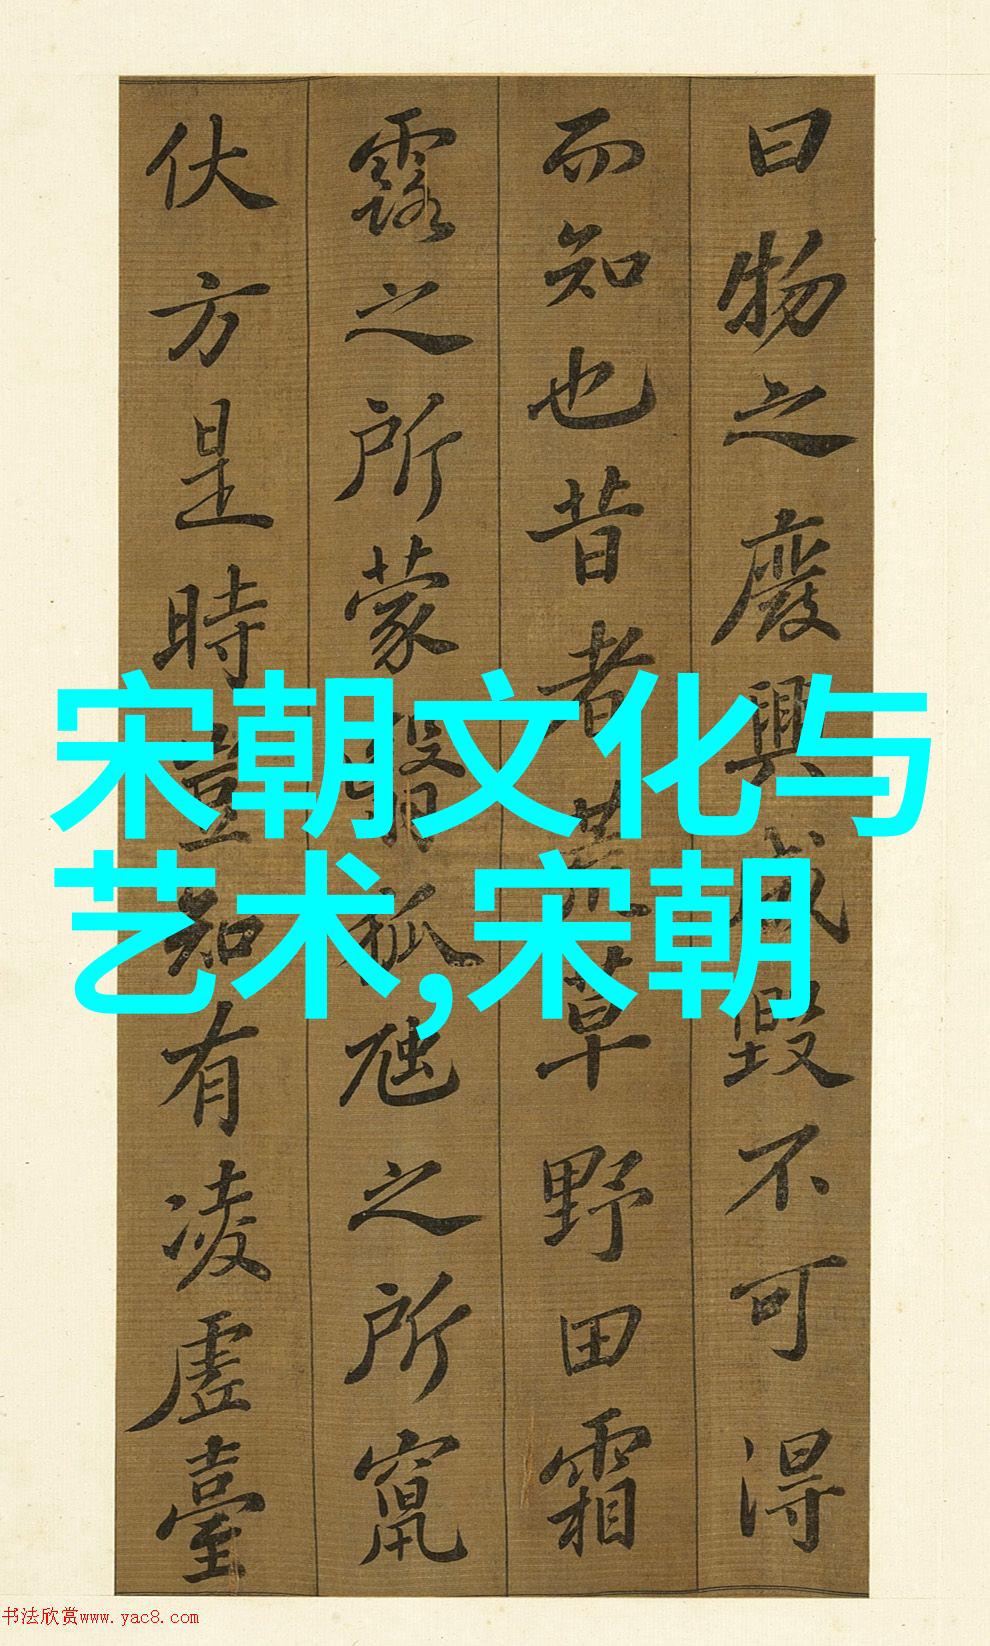 曰物之廢興成毀不可得
而知也昔者荒草野田霜
露之所蒙翳狐虺之所竄
伏方是時豈知有凌虛臺
宋朝文化与
艺术,宋朝
书法欣赏www.yac8.com